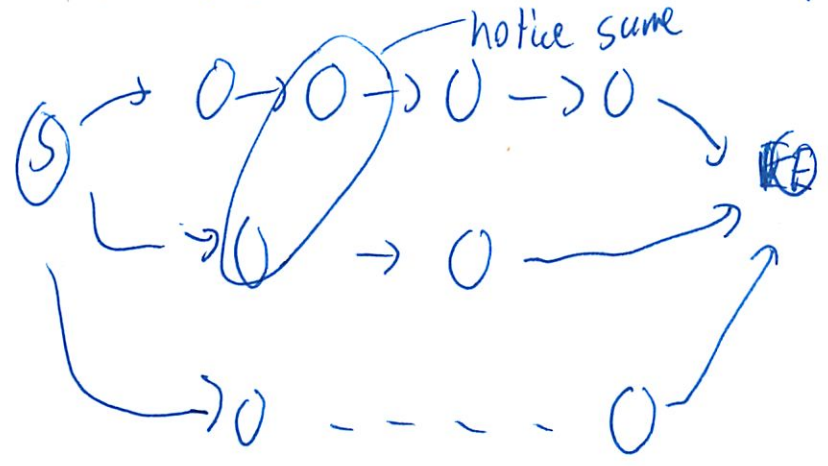 notice same
S
E